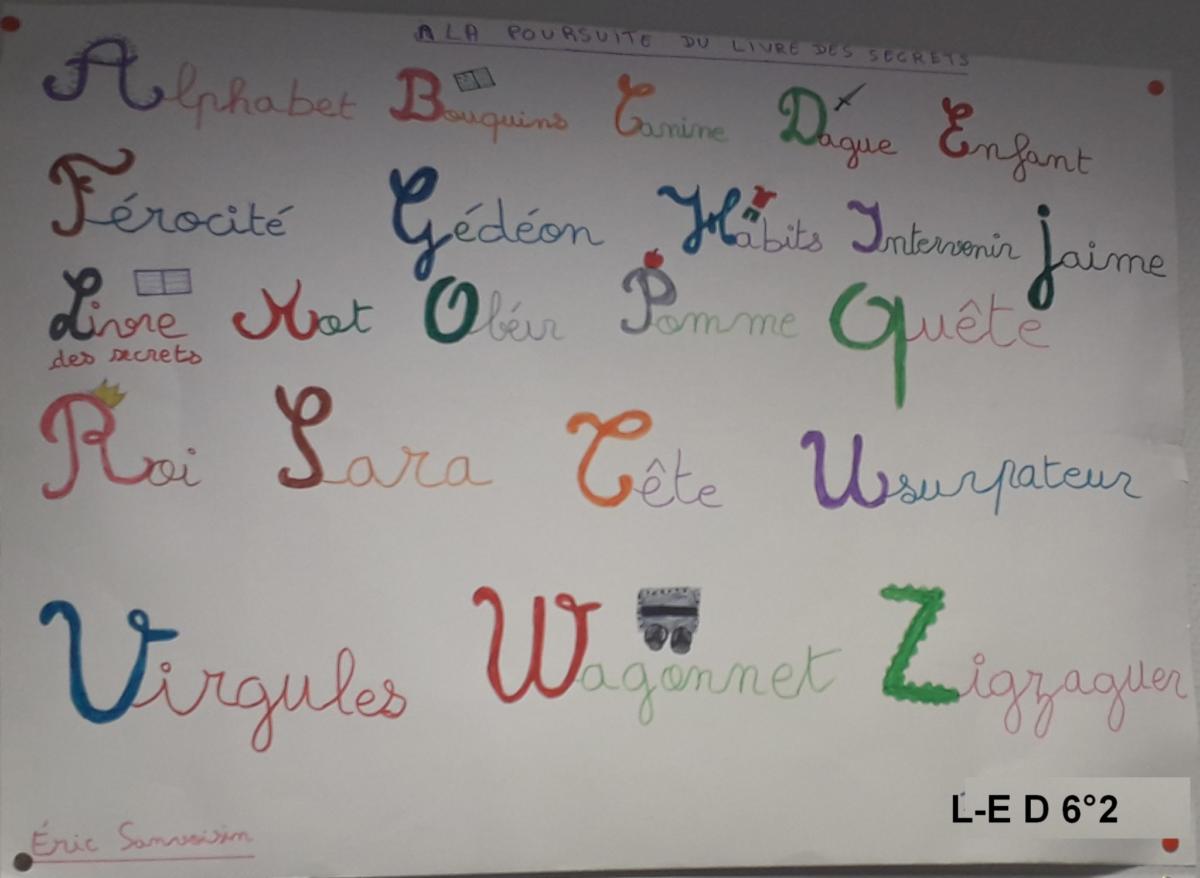 A LA POURSUITE DU LIVRE DES SECRETS
Alphabet Bouquins Canine Dague Enfant
Férocité Gédéon Habits Intervenir jaime
Livre Mot Obéir Pomme Quête
des secrets
Roi Sara Tête Usurpateur
Virgules Wagonnet Zigzaguer
Éric Sanvoisin
L-E D 6°2